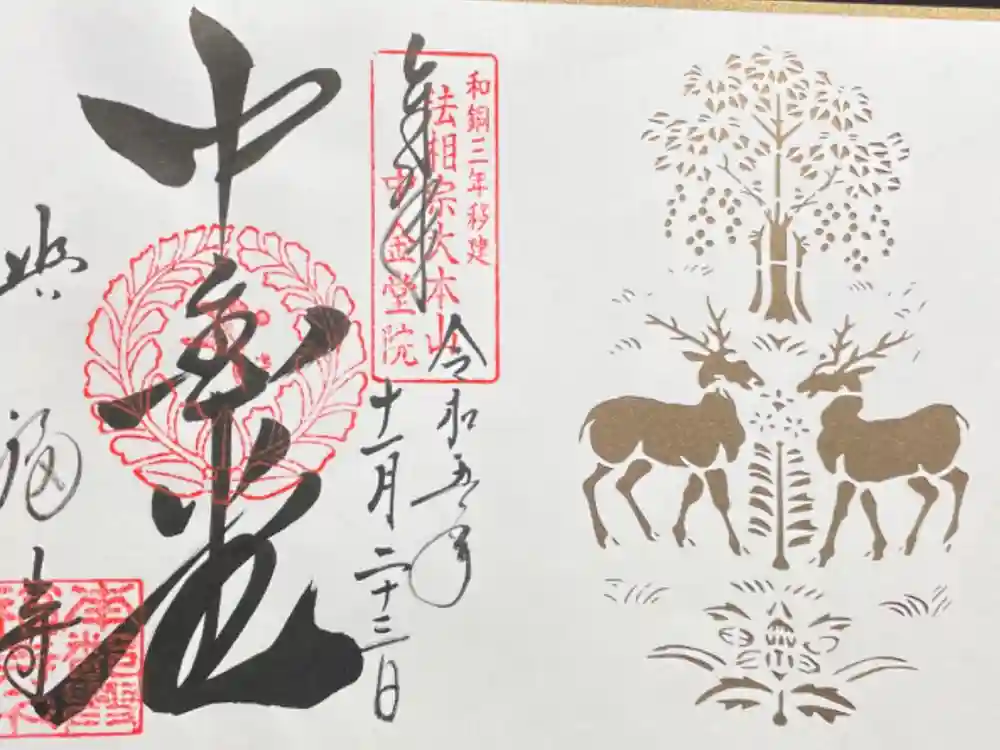 和銅三年移建
法相宗大本山
中金堂院
奉拝
令和五年
十一月二十三日
中金堂
興福寺